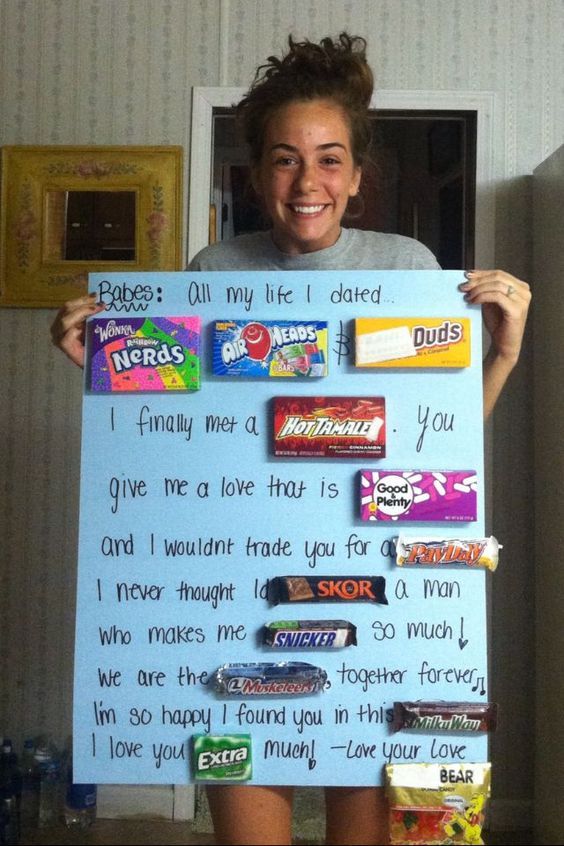 Babes: All my life I dated...
WONKA RAINBOW NeRdS AIRHEADS BARS & Duds
I finally met a HOT TAMALE. You
give me a love that is Good & Plenty
and I wouldnt trade you for a PayDay
I never thought Id SKOR a man
who makes me SNICKER so much!
We are the 2 Musketeers, together forever,
I'm so happy I found you in this MilkyWay
I love you Extra much! -Love your Love
BEAR